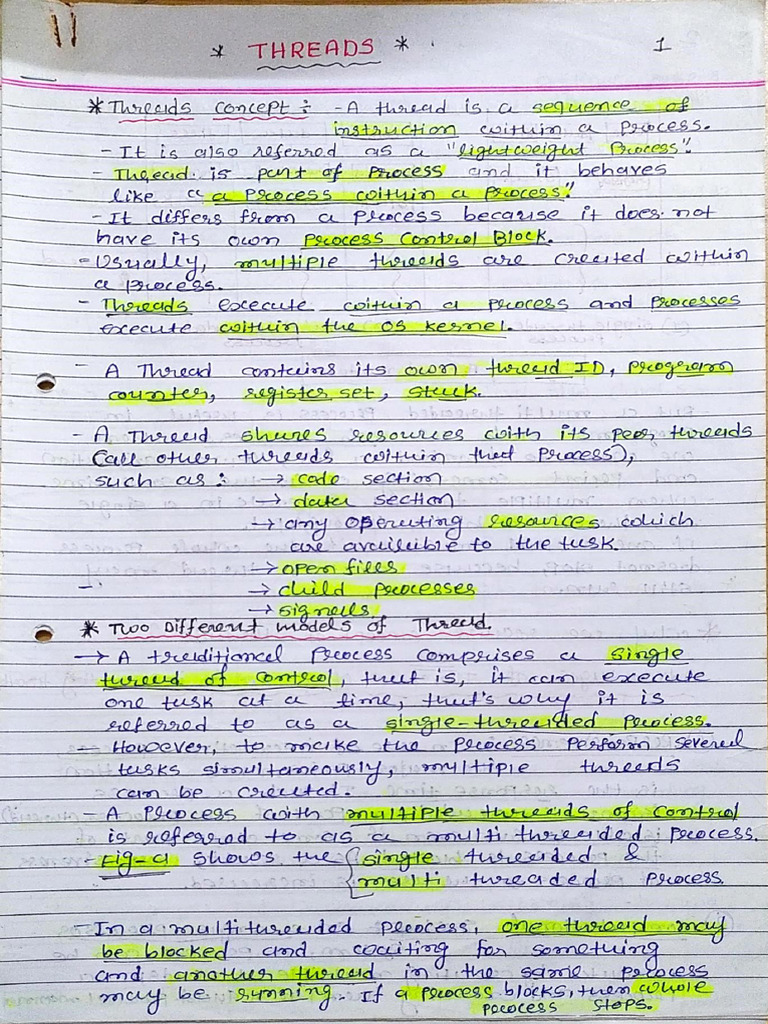 * THREADS *
1
* Threads Concept :- - A thread is a sequence of
instruction within a process.
- It is also referred as a "lightweight process".
- Thread is part of process and it behaves
like "a a process within a process".
- It differs from a process because it does not
have its own process Control Block.
- Usually, multiple threads are created within
a process.
- Threads execute within a process and processes
execute within the OS kernel.
- A Thread contains its own thread ID, program
counter, register set, stack.
- A Thread shares resources with its peer threads
(all other threads within that process),
such as : → code section
→ data section
→ any operating resources which
are available to the task.
→ open files
→ child processes
→ signals
* Two Different models of Thread.
→ A traditional process comprises a single
thread of control, that is, it can execute
one task at a time, that's why it is
referred to as a single-threaded process.
- However, to make the process perform several
tasks simultaneously, multiple threads
can be created.
- A process with multiple threads of control
is referred to as a multi threaded process.
- Fig-a shows the { single threaded &
multi threaded process.
- In a multithreaded process, one thread may
be blocked and waiting for something
and another thread in the same process
may be running. If a process blocks, then whole
process stops.